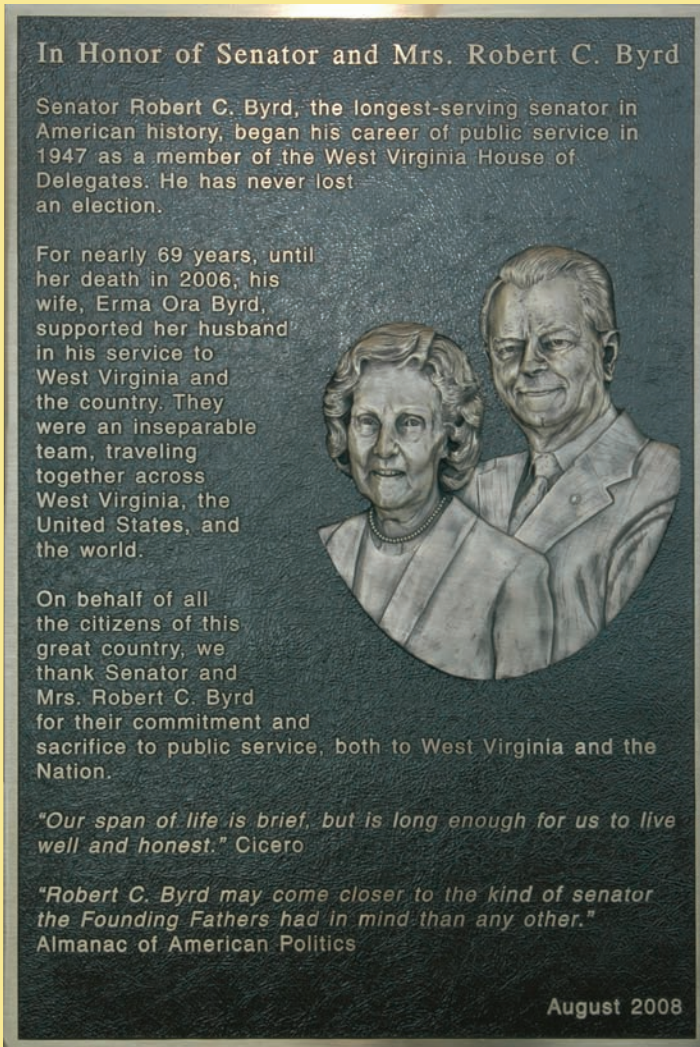 In Honor of Senator and Mrs. Robert C. Byrd
Senator Robert C. Byrd, the longest-serving senator in
American history, began his career of public service in
1947 as a member of the West Virginia House of
Delegates. He has never lost
an election.
For nearly 69 years, until
her death in 2006, his
wife, Erma Ora Byrd,
supported her husband
in his service to
West Virginia and
the country. They
were an inseparable
team, traveling
together across
West Virginia, the
United States, and
the world.
On behalf of all
the citizens of this
great country, we
thank Senator and
Mrs. Robert C. Byrd
for their commitment and
sacrifice to public service, both to West Virginia and the
Nation.
"Our span of life is brief, but is long enough for us to live
well and honest." Cicero
"Robert C. Byrd may come closer to the kind of senator
the Founding Fathers had in mind than any other."
Almanac of American Politics
August 2008